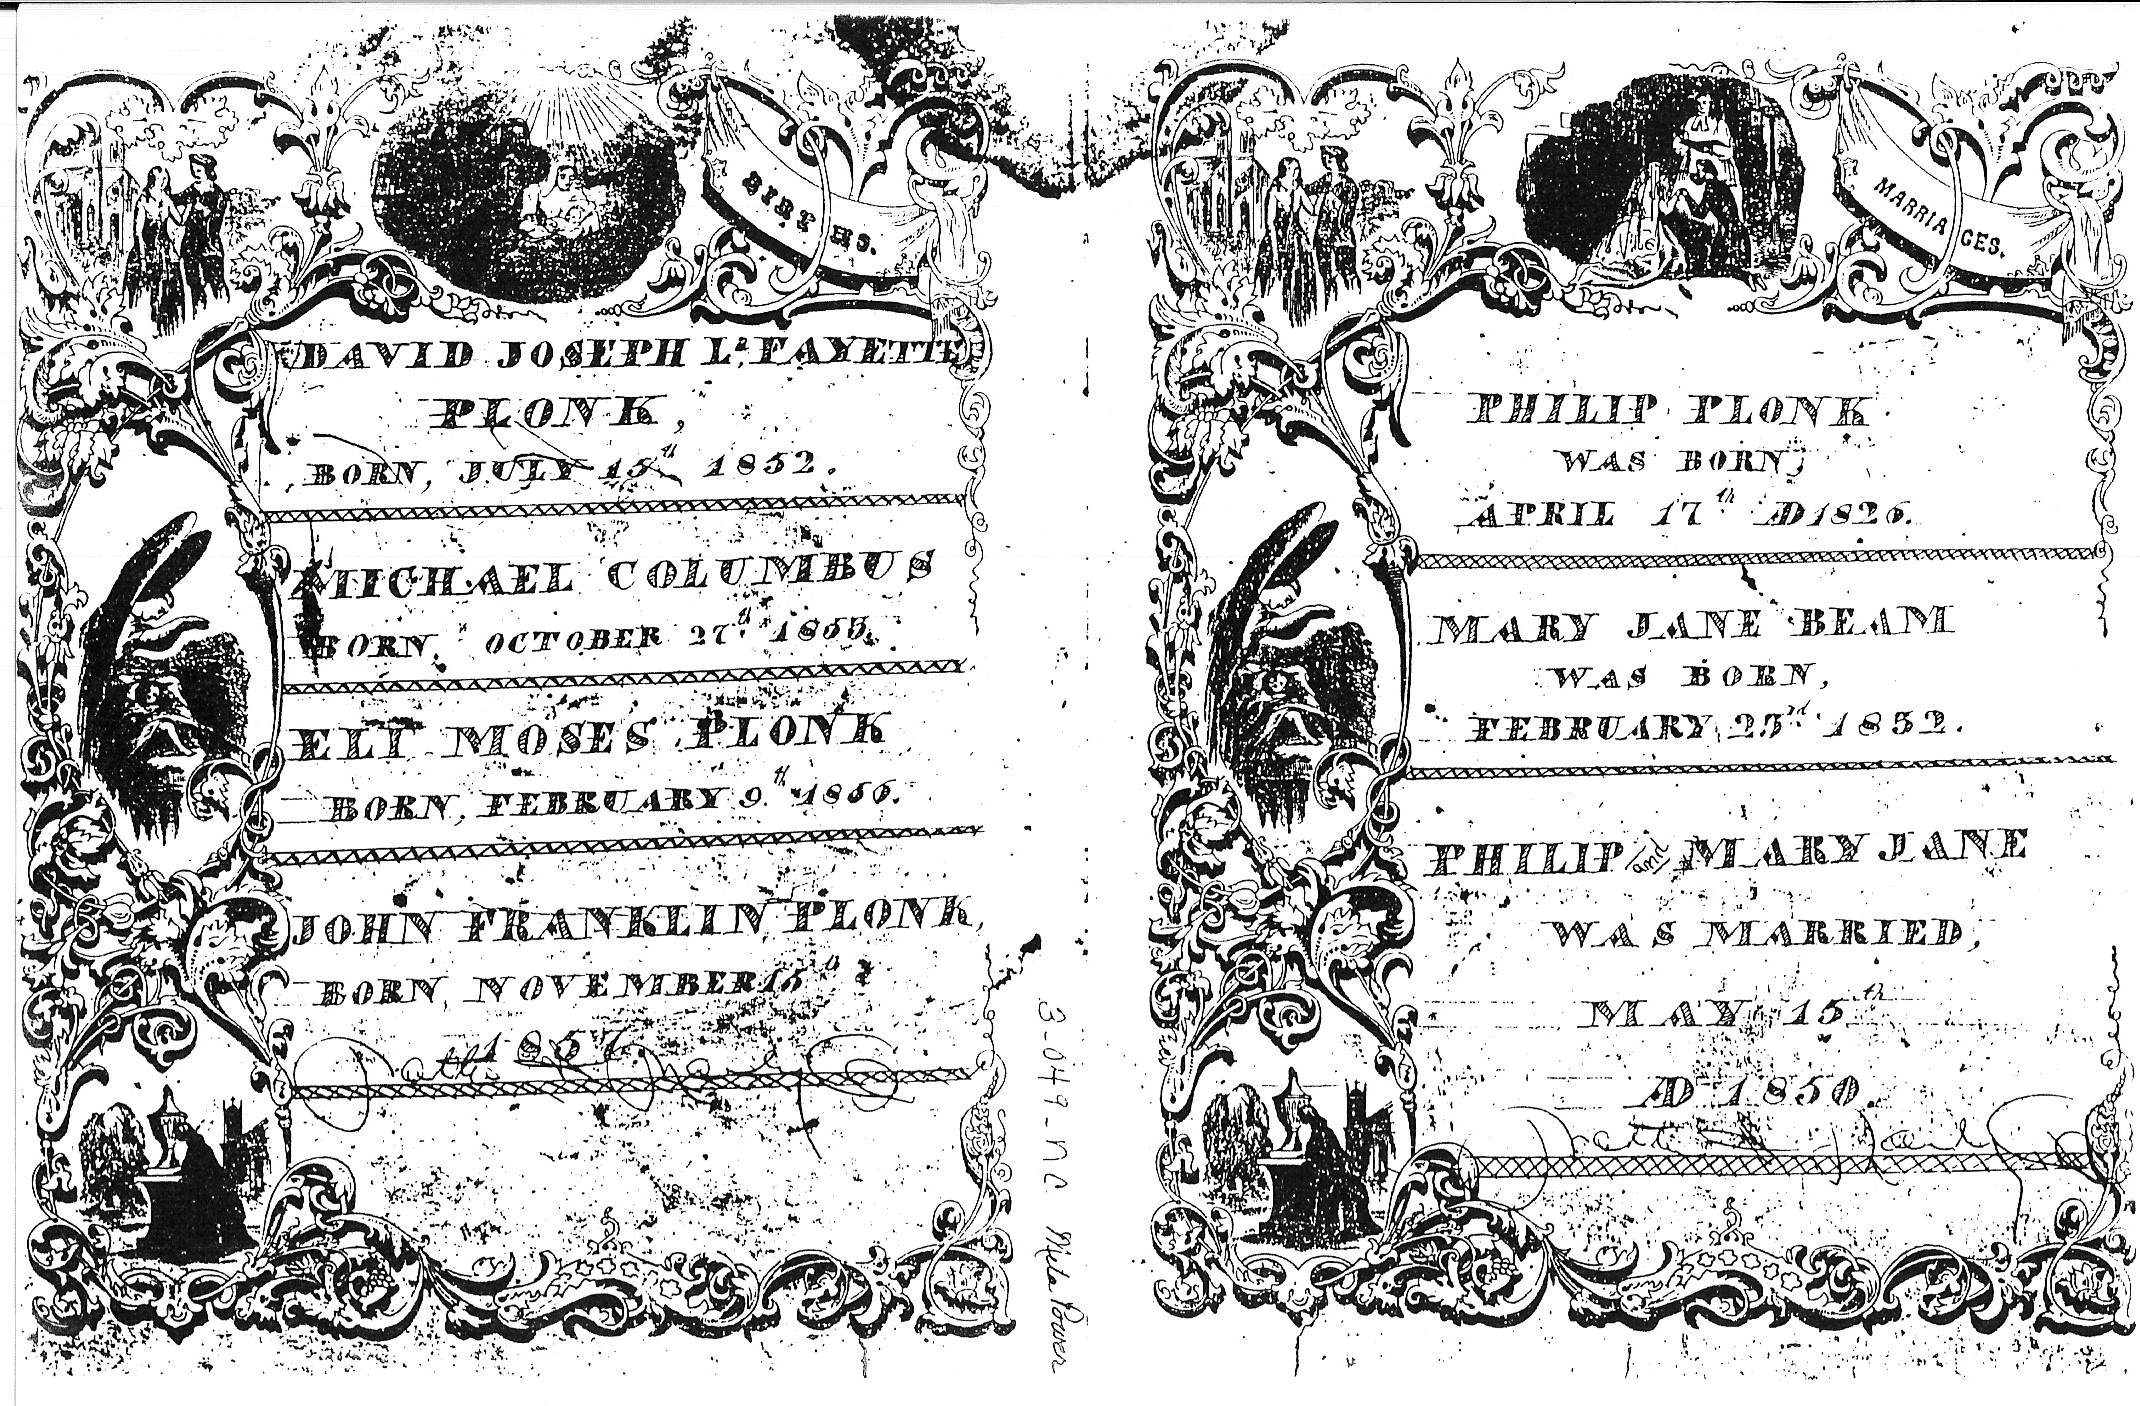 BIRTHS.
DAVID JOSEPH La. FAYETTE
PLONK,
BORN, JULY 15th 1852.
MICHAEL COLUMBUS
BORN, OCTOBER 27th 1853.
ELI MOSES PLONK
BORN, FEBRUARY 9th 1856.
JOHN FRANKLIN PLONK,
BORN, NOVEMBER 15th
1857.
MARRIAGES.
PHILIP PLONK
WAS BORN,
APRIL 17th AD 1826.
MARY JANE BEAM
WAS BORN,
FEBRUARY 23rd 1832.
PHILIP and MARY JANE
WAS MARRIED,
MAY 15th
AD 1850.
3-049-NC Mela Power